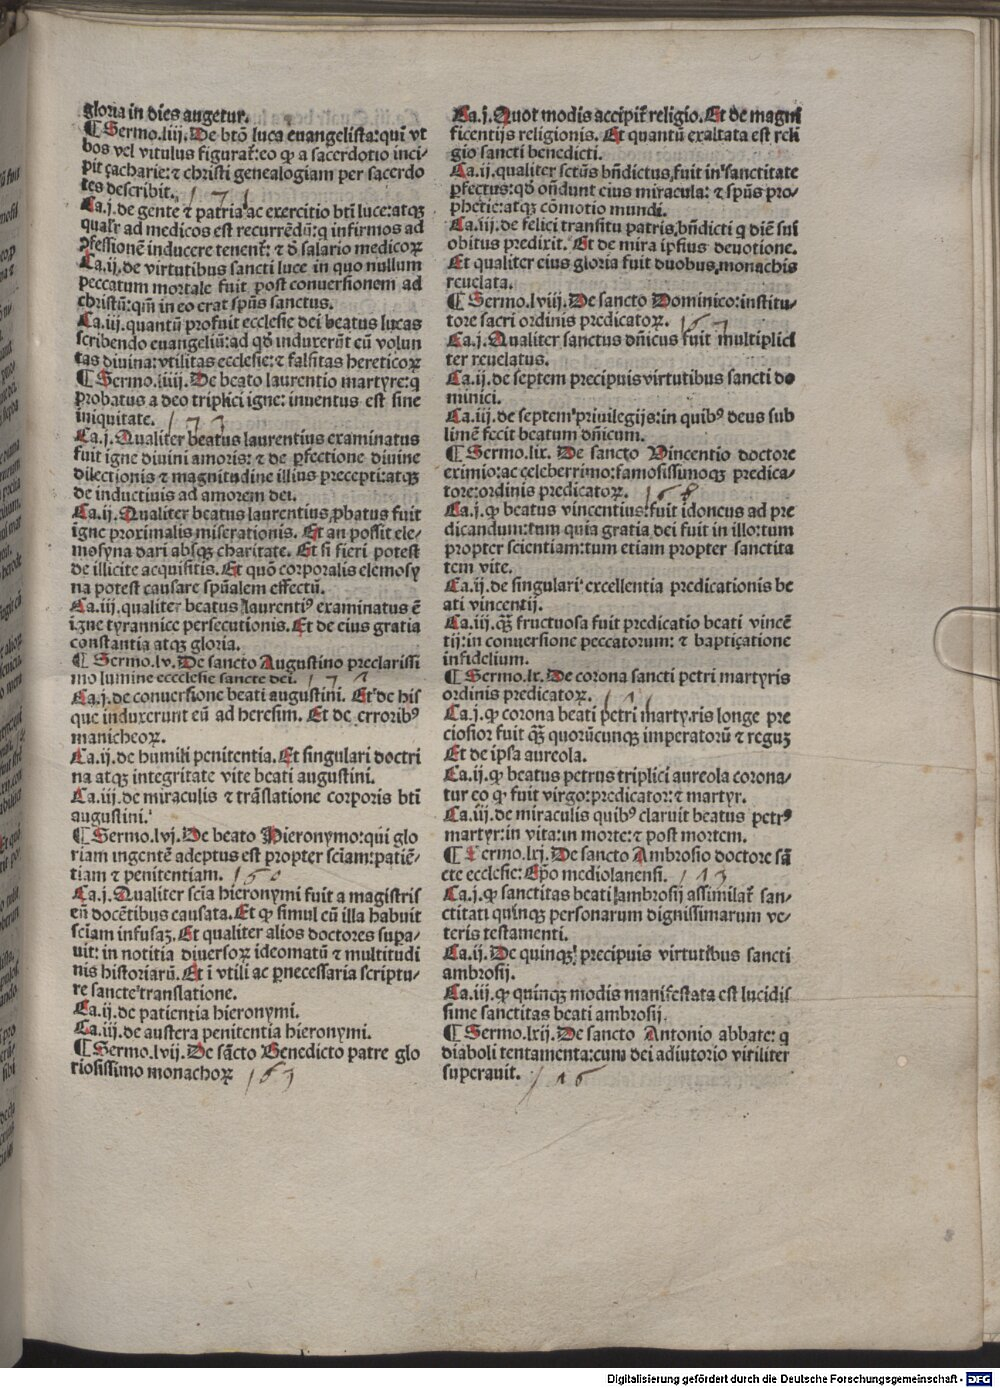 gloria in dies augetur.
¶ Sermo.liij. De btō luca euangelista: quī vt
bos vel vitulus figurat̄: eo ꝙ a sacerdotio inci-
pit çacharie: ⁊ christi genealogiam per sacerdo
tes describit. 171
Ca.j. de gente ⁊ patria ac exercitio btī luce: atqꝫ
qualr̄ ad medicos est recurrēdū: q infirmos ad
ꝓfessionē inducere tenent̄: ⁊ ð salario medicoꝝ
Ca.ij. de virtutibus sancti luce in quo nullum
peccatum mortale fuit post conuersionem ad
christū: qm̄ in eo erat spūs sanctus.
Ca.iij. quantū profuit ecclesie dei beatus lucas
scribendo euangeliū: ad qð induxerūt eū volun
tas diuina: vtilitas ecclesie: ⁊ falsitas hereticoꝝ
¶ Sermo.liiij. De beato laurentio martyre: q
probatus a deo triplici igne: inuentus est sine
iniquitate. 173
Ca.j. Qualiter beatus laurentius examinatus
fuit igne diuini amoris: ⁊ de ꝑfectione diuine
dilectionis ⁊ magnitudine illius precepti: atqꝫ
de inductiuis ad amorem dei.
Ca.ij. Qualiter beatus laurentius ꝓbatus fuit
igne proximalis miserationis. Et an possit ele-
mosyna dari absqꝫ charitate. Et si fieri potest
de illicite acquisitis. Et quō corporalis elemosy
na potest causare spūalem effectū.
Ca.iij. qualiter beatus laurentiꝰ examinatus ē
igne tyrannice persecutionis. Et de eius gratia
constantia atqꝫ gloria.
¶ Sermo.lv. De sancto Augustino preclarissi
mo lumine ecccelesie sancte dei.
Ca.j. de conuersione beati augustini. Et de his
que induxerunt eū ad heresim. Et de erroribꝰ
manicheoꝝ.
Ca.ij. de humili penitentia. Et singulari doctri
na atqꝫ integritate vite beati augustini.
Ca.iij. de miraculis ⁊ trāslatione corporis btī
augustini.
¶ Sermo.lvj. De beato Hieronymo: qui glo
riam ingentē adeptus est propter sciam: patiē-
tiam ⁊ penitentiam. 160
Ca.j. Qualiter scīa hieronymi fuit a magistris
eū docētibus causata. Et ꝙ simul cū illa habuit
sciam infusaꝫ. Et qualiter alios doctores supa-
uit: in notitia diuersoꝝ ideomatū ⁊ multitudi
nis historiarū. Et ī vtili ac ꝑnecessaria scriptu-
re sancte translatione.
Ca.ij. de patientia hieronymi.
Ca.iij. de austera penitentia hieronymi.
¶ Sermo.lvij. De sācto Benedicto patre glo
riosissimo monachoꝝ 163
Ca.j. Quot modis accipit̄ religio. Et de magni
ficentijs religionis. Et quantū exaltata est reli
gio sancti benedicti.
Ca.ij. qualiter sctūs bn̄dictus fuit in sanctitate
ꝑfectus: qð on̄dunt eius miracula: ⁊ spūs pro-
phetie: atqꝫ cōmotio mundi.
Ca.iij. de felici transitu patris bn̄dicti q diē sui
obitus predixit. Et de mira ipsius deuotione.
Et qualiter eius gloria fuit duobus monachis
reuelata.
¶ Sermo.lviij. De sancto Dominico: institu-
tore sacri ordinis predicatoꝝ. 167
Ca.j. Qualiter sanctus dn̄icus fuit multiplici
ter reuelatus.
Ca.ij. de septem precipuis virtutibus sancti do
minici.
Ca.iij. de septem priuilegijs: in quibꝰ deus sub
limē fecit beatum dn̄icum.
¶ Sermo.lix. De sancto Vincentio doctore
eximio: ac celeberrimo: famosissimoqꝫ predica-
tore: ordinis predicatoꝝ. 168
Ca.j. ꝙ beatus vincentius: fuit idoneus ad pre
dicandum: tum quia gratia dei fuit in illo: tum
propter scientiam: tum etiam propter sanctita
tem vite.
Ca.ij. de singulari excellentia predicationis be
ati vincentij.
Ca.iij. qꝫ̄ fructuosa fuit predicatio beati vincē
tij: in conuersione peccatorum: ⁊ baptiçatione
infidelium.
¶ Sermo.lx. De corona sancti petri martyris
ordinis predicatoꝝ.
Ca.j. ꝙ corona beati petri martyris longe pre
ciosior fuit qꝫ̄ quorūcunqꝫ imperatorū ⁊ reguꝫ
Et de ipsa aureola.
Ca.ij. ꝙ beatus petrus triplici aureola corona-
tur eo ꝙ fuit virgo: predicator: ⁊ martyr.
Ca.iij. de miraculis quibꝰ claruit beatus petrꝰ
martyr: in vita: in morte: ⁊ post mortem.
¶ Sermo.lxj. De sancto Ambrosio doctore sā
cte ecclesie: Ep̄o mediolanensi. 113
Ca.j. ꝙ sanctitas beati ambrosij assimilat̄ san-
ctitati quinqꝫ personarum dignissimarum ve-
teris testamenti.
Ca.ij. De quinqꝫ precipuis virtutibus sancti
ambrosij.
Ca.iij. ꝙ quinqꝫ modis manifestata est lucidis
sime sanctitas beati ambrosij.
¶ Sermo.lxij. De sancto Antonio abbate: q
diaboli tentamenta: cum dei adiutorio viriliter
superauit. 116
Digitalisierung gefördert durch die Deutsche Forschungsgemeinschaft - DFG